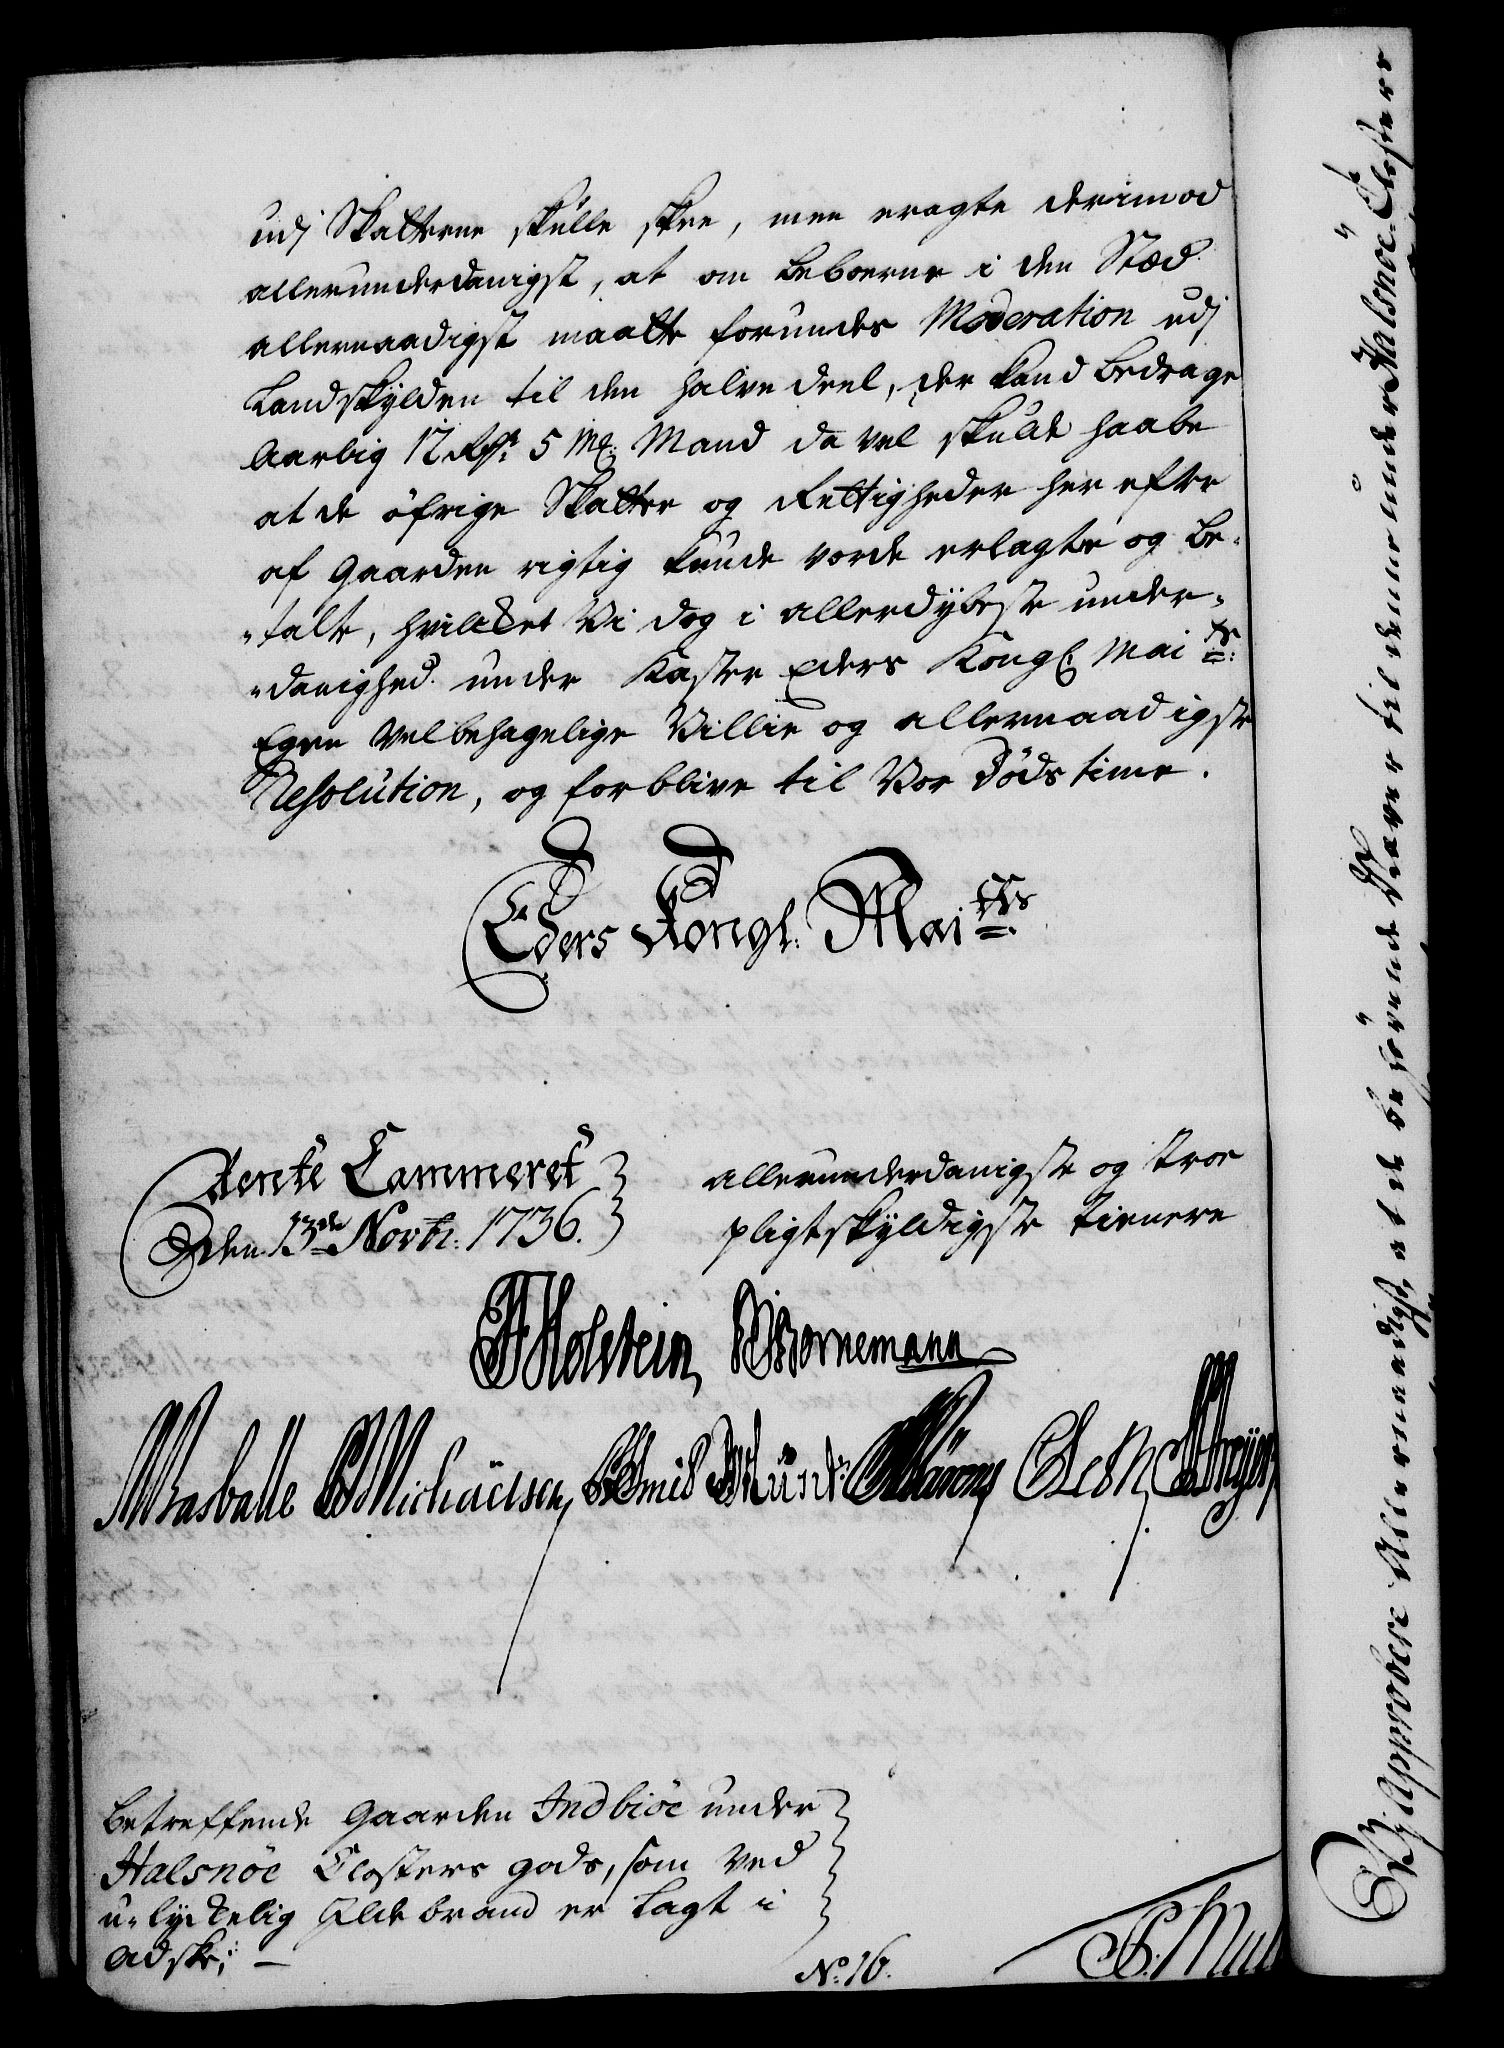 udj Skatterne skulle skee, men eragte derimod
allerunderdanigst, at om Beboerne i den Stæd
allernaadigst maatte forundes Moderation udj
Landskylden til den halve deel, der kand bedrage
Aarlig 12 Rdr. 5 Mk: Mand da vel skulde haabe
at de öfrige Skatter og Rettigheder her efter
af Gaarden rigtig kunde vorde erlagte og be-
-talt, hvilcket Vi dog i allerdybeste under-
-danighed under kaster Eders Kongl: Mai ts:
Egen Velbehagelige Villie og allernaadigste
Resolution, og forblive til Vor Dödstime.
Eders Kongl: Mai tts
Rente Cammeret
den 13de Novbr: 1736.
allerunderdanigste og troe
pligtskyldigste tienere
Holstein, Bornemann
Basballe Michaelsen
Betreffende Gaarden Indbiöe under
Halsnöe Closters gods, som ved
u-lyckelig Ildebrand er lagt i
Adske; —
No. 16.
Vj Approbere Allernaadigst, at de behövende Giæver til denne under Halsnöe Closter